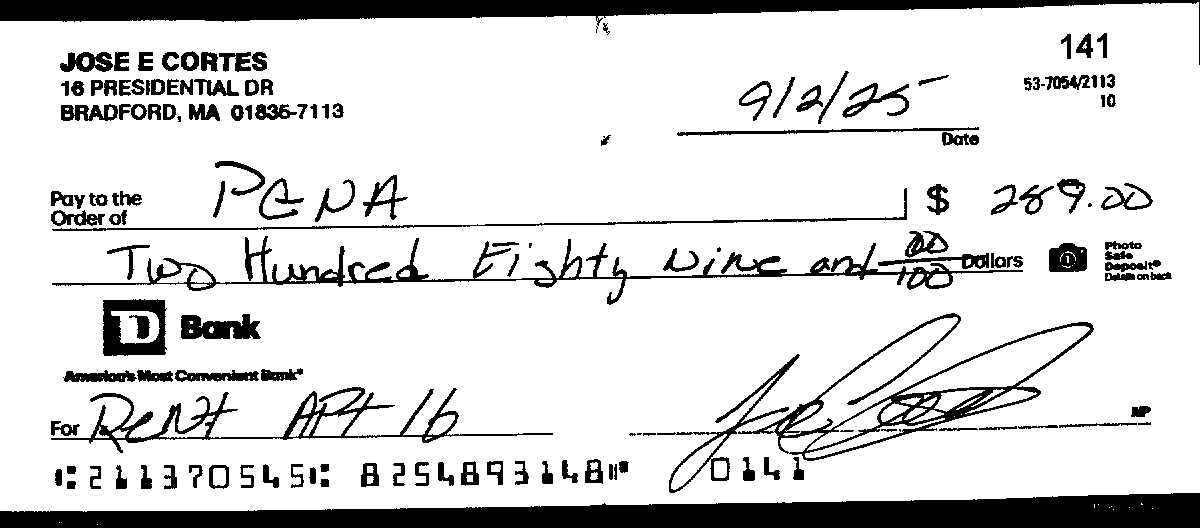 JOSE E CORTES
16 PRESIDENTIAL DR
BRADFORD, MA 01835-7113
141
53-7054/2113
10
9/2/25
Date
Pay to the
Order of
PENA
$ 289.00
Two Hundred Eighty Nine and 00/100 Dollars
Photo
Safe
Deposit®
Details on back
TD Bank
America's Most Convenient Bank®
For Rent APt 16
MP
⑆211370545⑆ 8254893148⑈ 0141